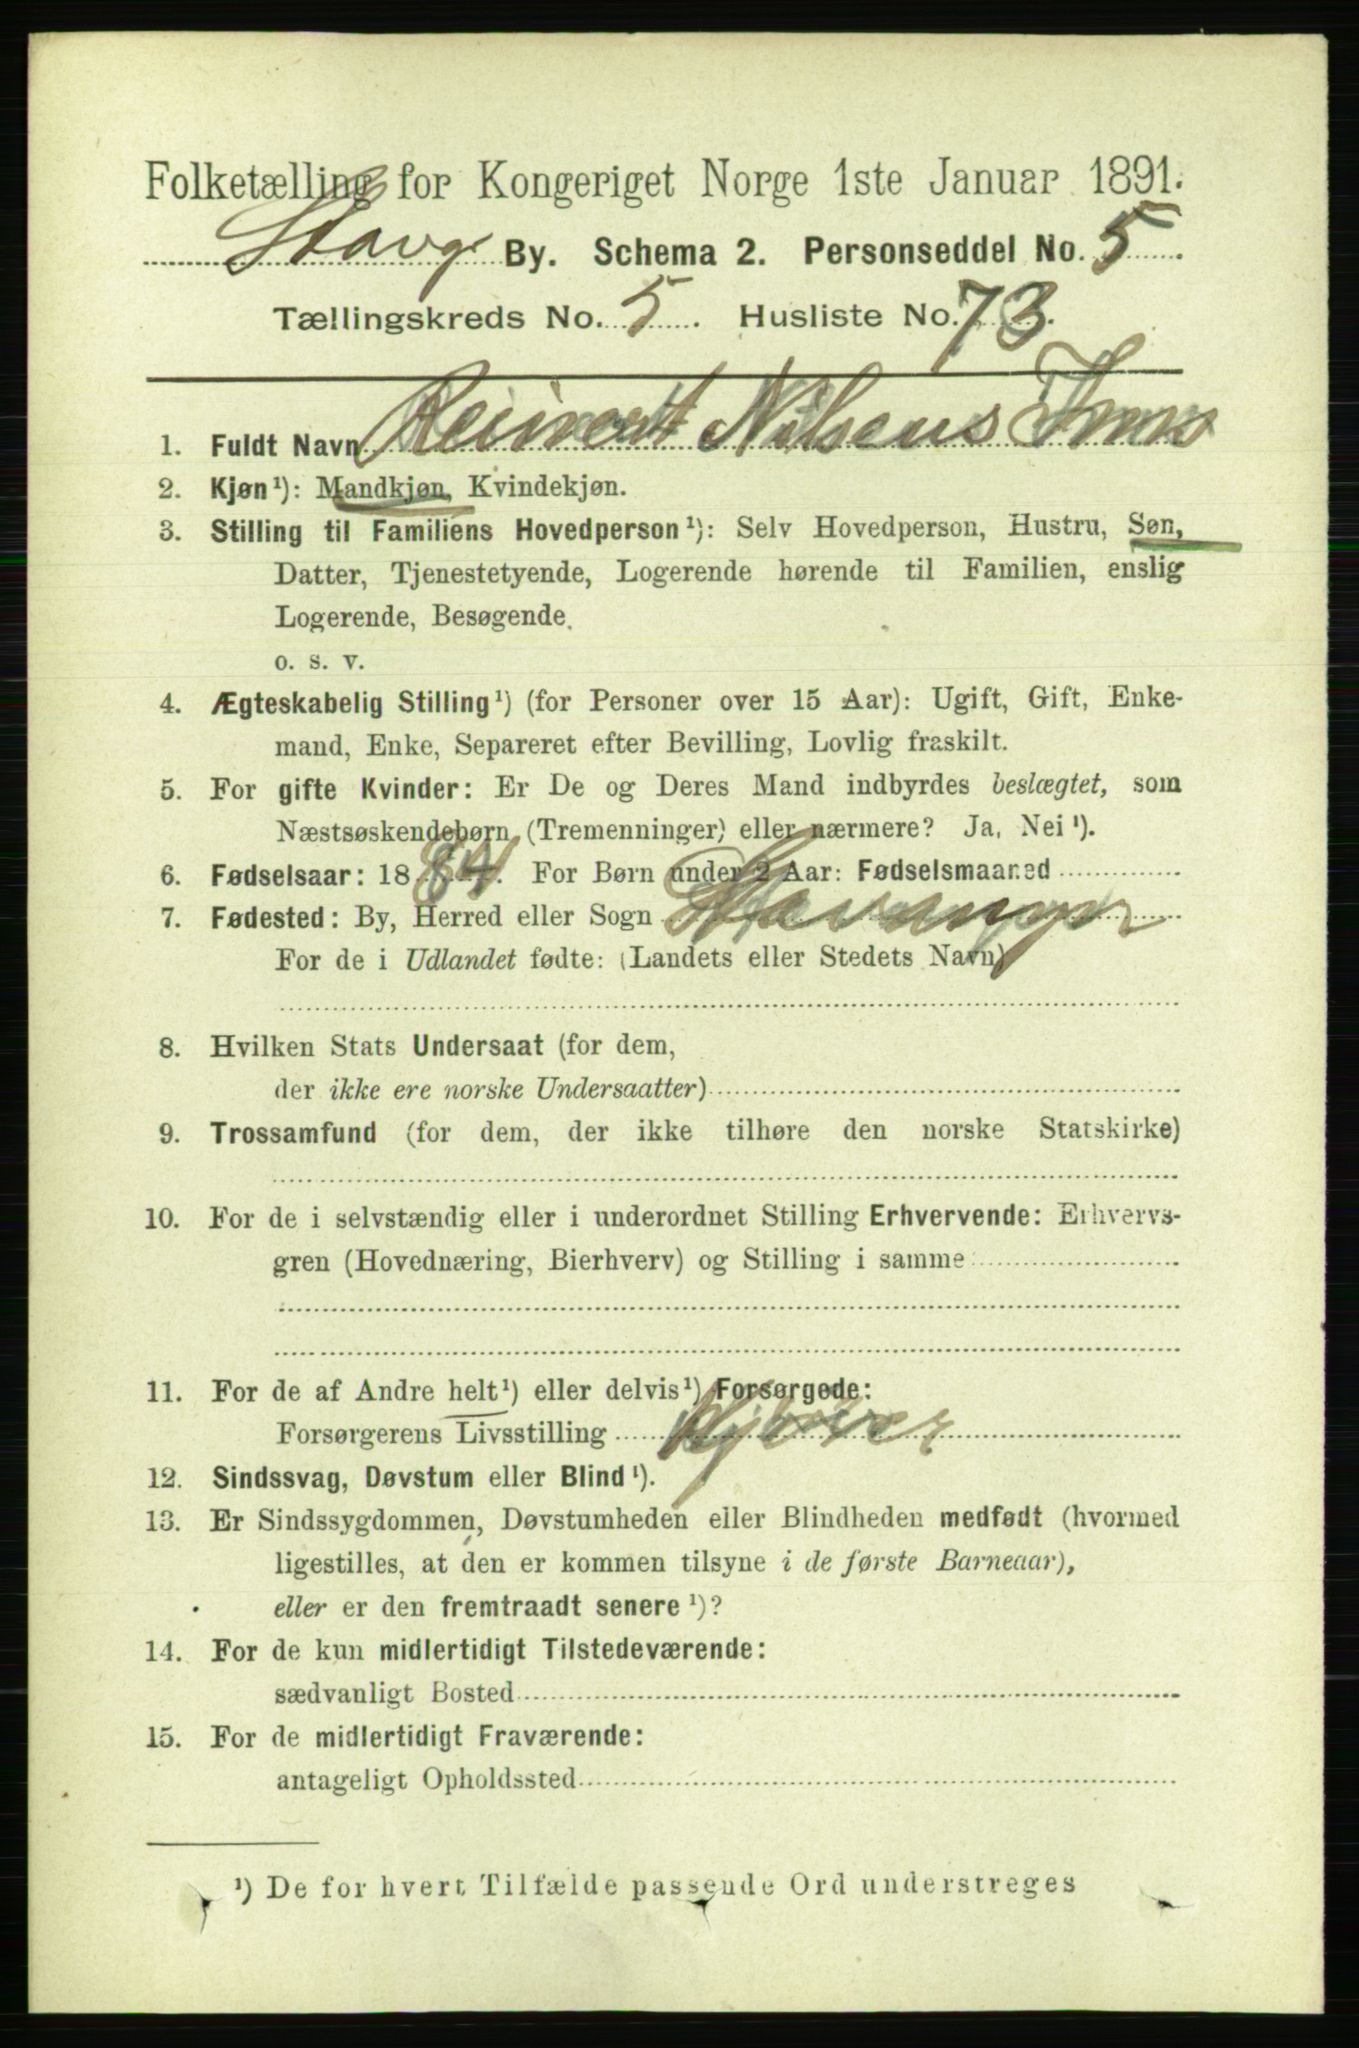 Folketælling for Kongeriget Norge 1ste Januar 1891.
Stavg. By. Schema 2. Personseddel No. 5
Tællingskreds No. 5. Husliste No. 73.
1. Fuldt Navn Reinert Nilsens
2. Kjøn¹): Mandkjøn, Kvindekjøn.
3. Stilling til Familiens Hovedperson¹): Selv Hovedperson, Hustru, Søn,
Datter, Tjenestetyende, Logerende hørende til Familien, enslig
Logerende, Besøgende
o. s. v.
4. Ægteskabelig Stilling¹) (for Personer over 15 Aar): Ugift, Gift, Enke-
mand, Enke, Separeret efter Bevilling, Lovlig fraskilt.
5. For gifte Kvinder: Er De og Deres Mand indbyrdes beslægtet, som
Næstsøskendebørn (Tremenninger) eller nærmere? Ja, Nei¹).
6. Fødselsaar: 1884. For Børn under 2 Aar: Fødselsmaaned
7. Fødested: By, Herred eller Sogn Stavanger
For de i Udlandet fødte: (Landets eller Stedets Navn)
8. Hvilken Stats Undersaat (for dem,
der ikke ere norske Undersaatter)
9. Trossamfund (for dem, der ikke tilhøre den norske Statskirke)
10. For de i selvstændig eller i underordnet Stilling Erhvervende: Erhvervs-
gren (Hovednæring, Bierhverv) og Stilling i samme
11. For de af Andre helt¹) eller delvis¹) Forsørgede:
Forsørgerens Livsstilling
12. Sindssvag, Døvstum eller Blind¹).
13. Er Sindssygdommen, Døvstumheden eller Blindheden medfødt (hvormed
ligestilles, at den er kommen tilsyne i de første Barneaar),
eller er den fremtraadt senere¹)?
14. For de kun midlertidigt Tilstedeværende:
sædvanligt Bosted
15. For de midlertidigt Fraværende:
antageligt Opholdssted
¹) De for hvert Tilfælde passende Ord understreges